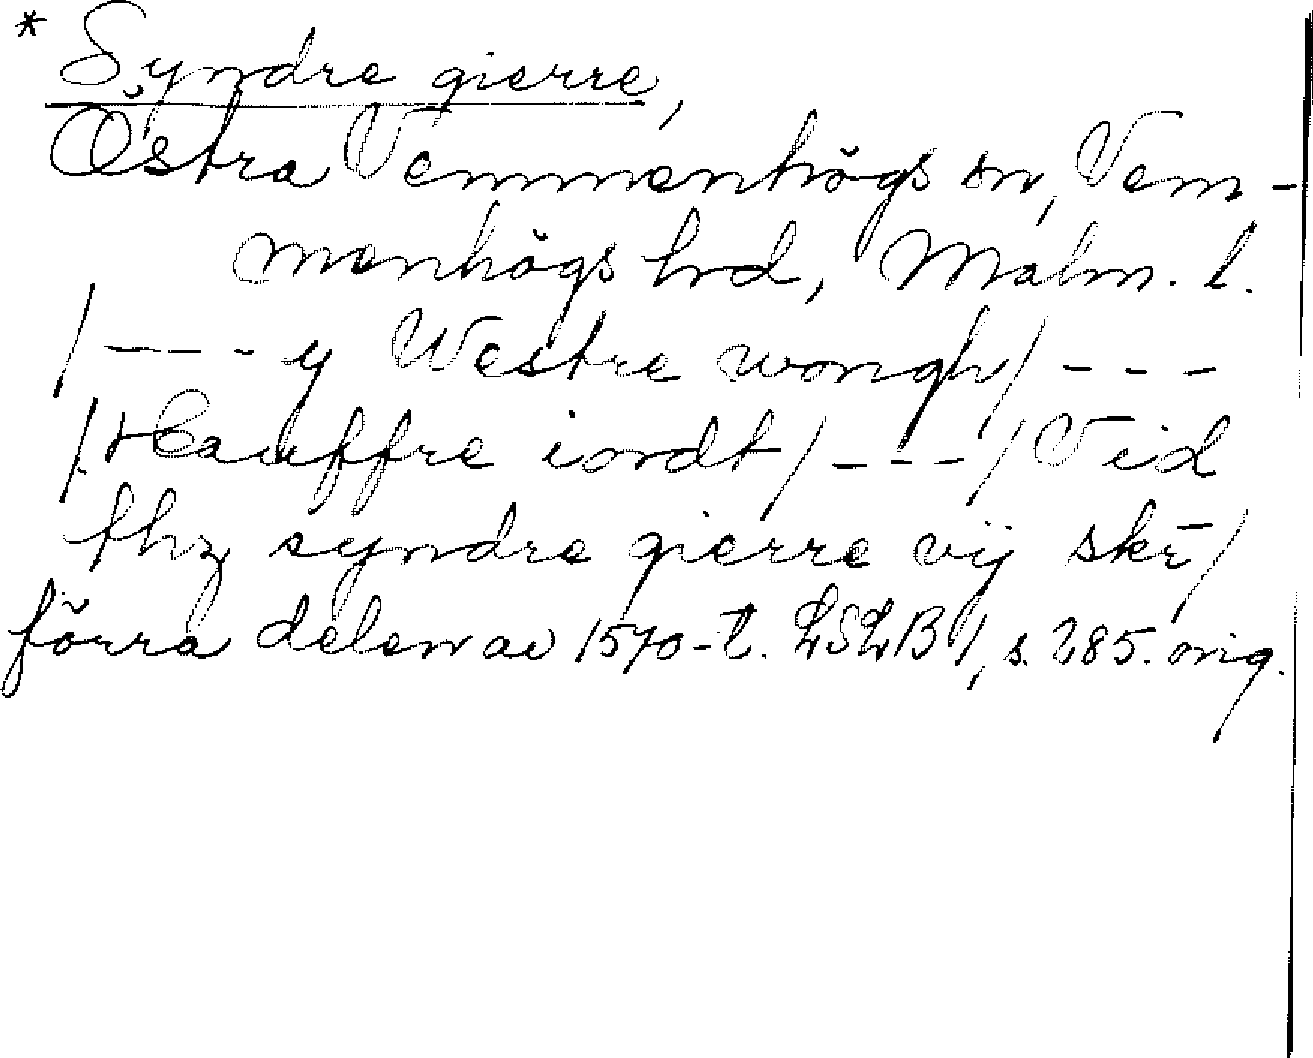 * Syndre gierre,
Östra Vemmenhögs sn, Vem-
menhögs hrd, Malm. l.
/---y Westre wongh/---
/Hauffre iordt/---/Vid
thz syndre gierre vij skē/
förra delen av 1570-t. LSLB 1, s. 285. orig.